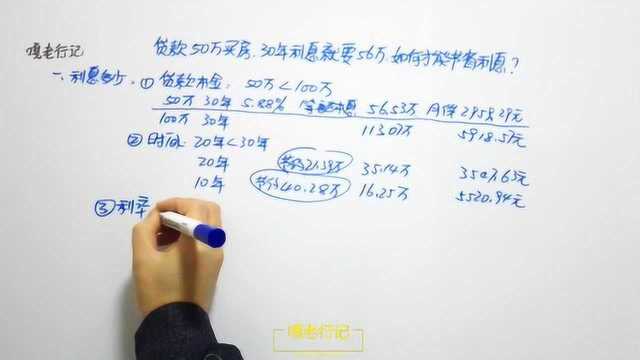 嘎老行记
贷款50万买房.30年利息就要56万.如何才能节省利息?
一、利息多少.①贷款本金，50万<100万
50万 30年 5.88% 等额本息 56.53万 月供2959.29元
100万 30年 113.07万 5918.57元
②时间：20年<30年
20年 节约21.39万 35.14万 3547.63元
10年 节约40.28万 16.25万 5520.94元
③利率
嘎老行记